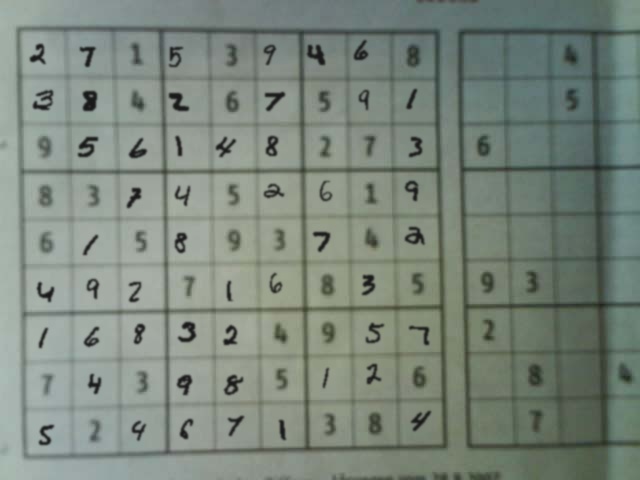 2 7 1 5 3 9 4 6 8
3 8 4 2 6 7 5 9 1
9 5 6 1 4 8 2 7 3
8 3 7 4 5 2 6 1 9
6 1 5 8 9 3 7 4 2
4 9 2 7 1 6 8 3 5
1 6 8 3 2 4 9 5 7
7 4 3 9 8 5 1 2 6
5 2 9 6 7 1 3 8 4
4
5
6
9 3
2
8 4
7